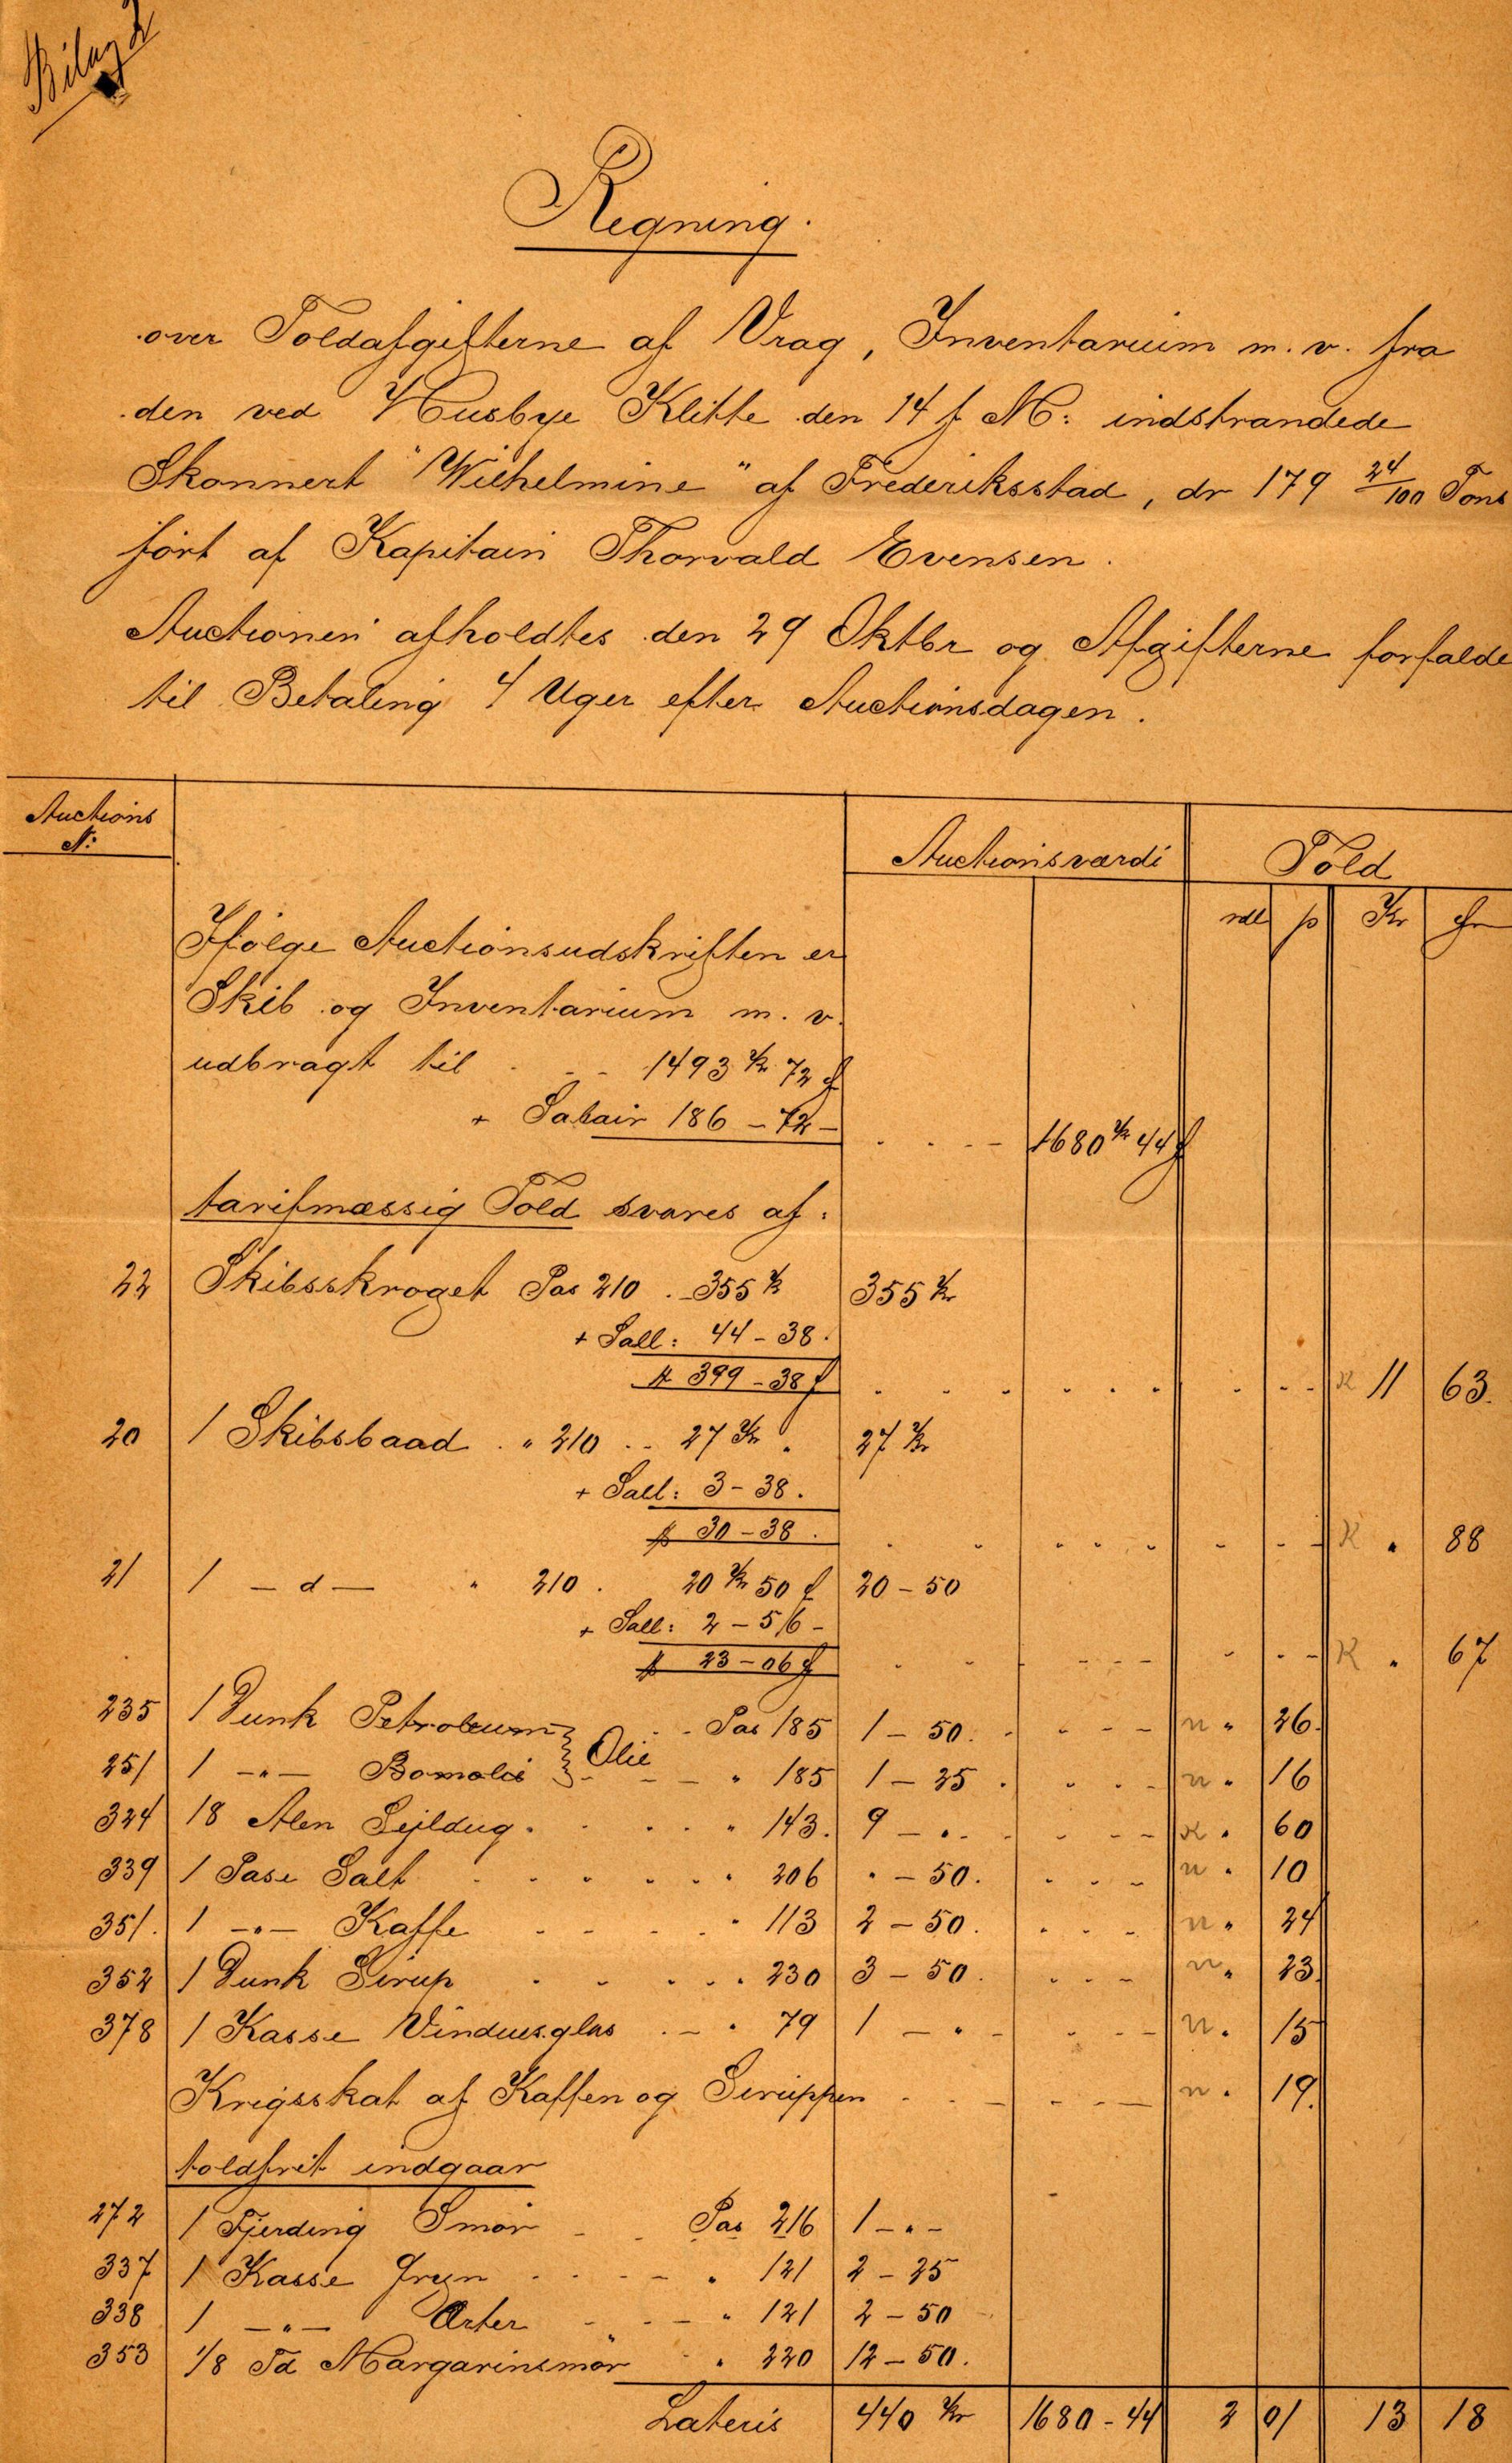 Bilag 2
Regning.
over Toldafgifterne af Vrag, Inventarium m. v. fra
den ved Husbye Klitte den 14 f M: indstrandede
Skonnert "Wilhelmine" af Frederiksstad, dr 179 24/100 Tons
ført af Kapitain Thorvald Evensen.
Auctionen afholdtes den 29 Oktbr og Afgifterne forfalde
til Betaling 4 Uger efter Auctionsdagen.
Auctions Auctionsværdi Told
N:
rdl ß Kr Ør
Ifølge Auctionsudskriften er
Skib og Inventarium m. v.
udbragt til . - - 1493 Kr 72 Ø
+ Salair 186 - 72 - . . . - 1680 Kr 44 Ø
tarifmæssig Told svares af:
22 Skibsskroget Pos 210 . - 355 Kr 355 Kr
+ Sall: 44 - 38.
399 - 38 K 11 63.
20 1 Skibsbaad . " 210 .. 27 Kr " 27 Kr
+ Sall: 3 - 38.
30 - 38. K " 88
21 1 - d - " 210 . 20 Kr 50 Ø 20 - 50
+ Sall: 2 - 56 -
23 - 06 Ø K " 67
235 1 Dunk Petroleum } Olie . - Pos 185 1 - 50. n " 26.
251 1 - " - Bomolie - - - " 185 1 - 25. n " 16
324 18 Alen Sejldug . . . . " 143. 9 - " - n " 60
339 1 Pose Salt . . . . . " 206 " - 50. n " 10
351. 1 - " - Kaffe . . . . " 113 2 - 50. n " 24
352 1 Dunk Sirup . . . . " 230 3 - 50. n " 23.
378 1 Kasse Vinduesglas . - " 79 1 - " - n " 15
Krigsskat af Kaffen og Siruppen n " 19.
toldfrit indgaar
272 1 Fjerding Smør - - Pos 216 1 - " -
337 1 Kasse Gryn . . . - - " 121 2 - 25
338 1 - " - Ærter - - - " 121 2 - 50
353 1/8 Td Margarinsmør " " 220 12 - 50.
Lateris 440 Kr 1680 - 44 2 01 13 18